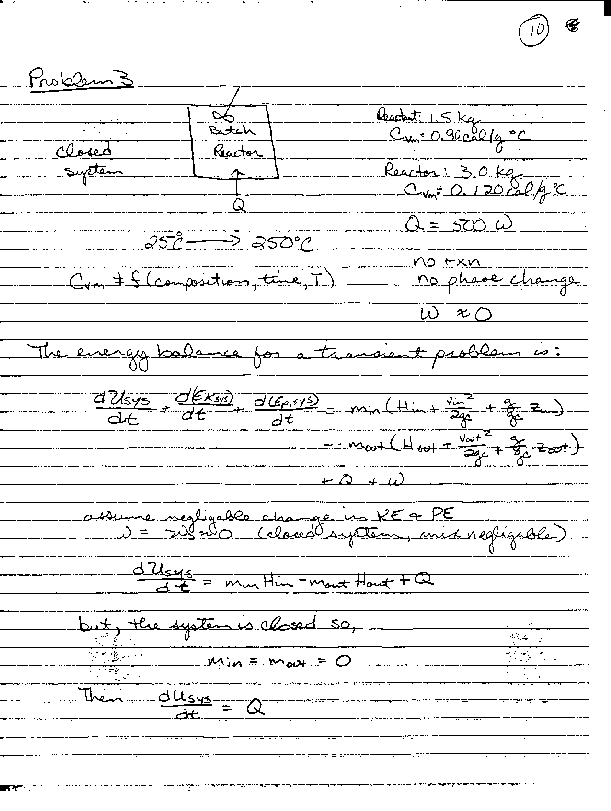 10
Problem 3
Batch
Reactor
closed
system
Q
Reactant: 1.5 kg
Cvm = 0.9 cal/g °C
Reactor: 3.0 kg
Cvm = 0.120 cal/g °C
Q = 500 W
25°C → 250°C
no rxn
Cvm ≠ f(composition, time, T)
no phase change
W ≈ 0
The energy balance for a transient problem is:
dUsys/dt + d(Ek,sys)/dt + d(Ep,sys)/dt = min(Hin + vin²/2gc + g/gc zin)
- mout(Hout + vout²/2gc + g/gc zout)
+ Q + W
assume negligible change in KE & PE
W = Ws ≈ 0 (closed system, mix negligible)
dUsys/dt = min Hin - mout Hout + Q
but, the system is closed so,
min = mout = 0
Then dUsys/dt = Q